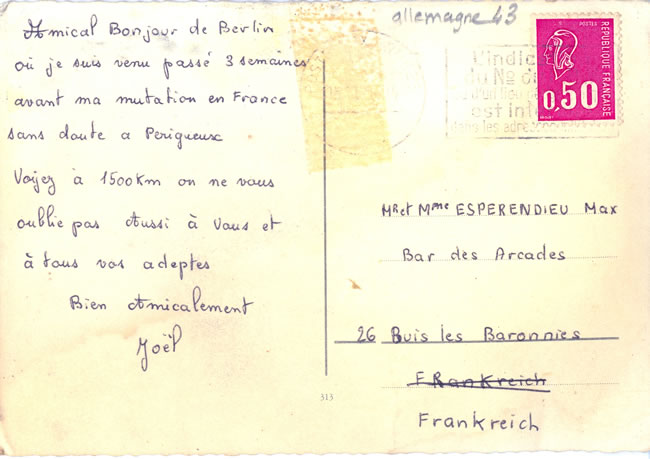 Amical Bonjour de Berlin
où je suis venu passé 3 semaines
avant ma mutation en France
sans doute a Périgueux
Voyez à 1500km on ne vous
oublie pas Aussi à Vous et
à tous vos adeptes
Bien Amicalement
Joël
allemagne 43
L'indic
du No d
d'un
est in
dans les adre
POSTES
REPUBLIQUE FRANÇAISE
0,50
Mr et Mme ESPERENDIEU Max
Bar des Arcades
26 Buis les Baronnies
FRankreich
Frankreich
313